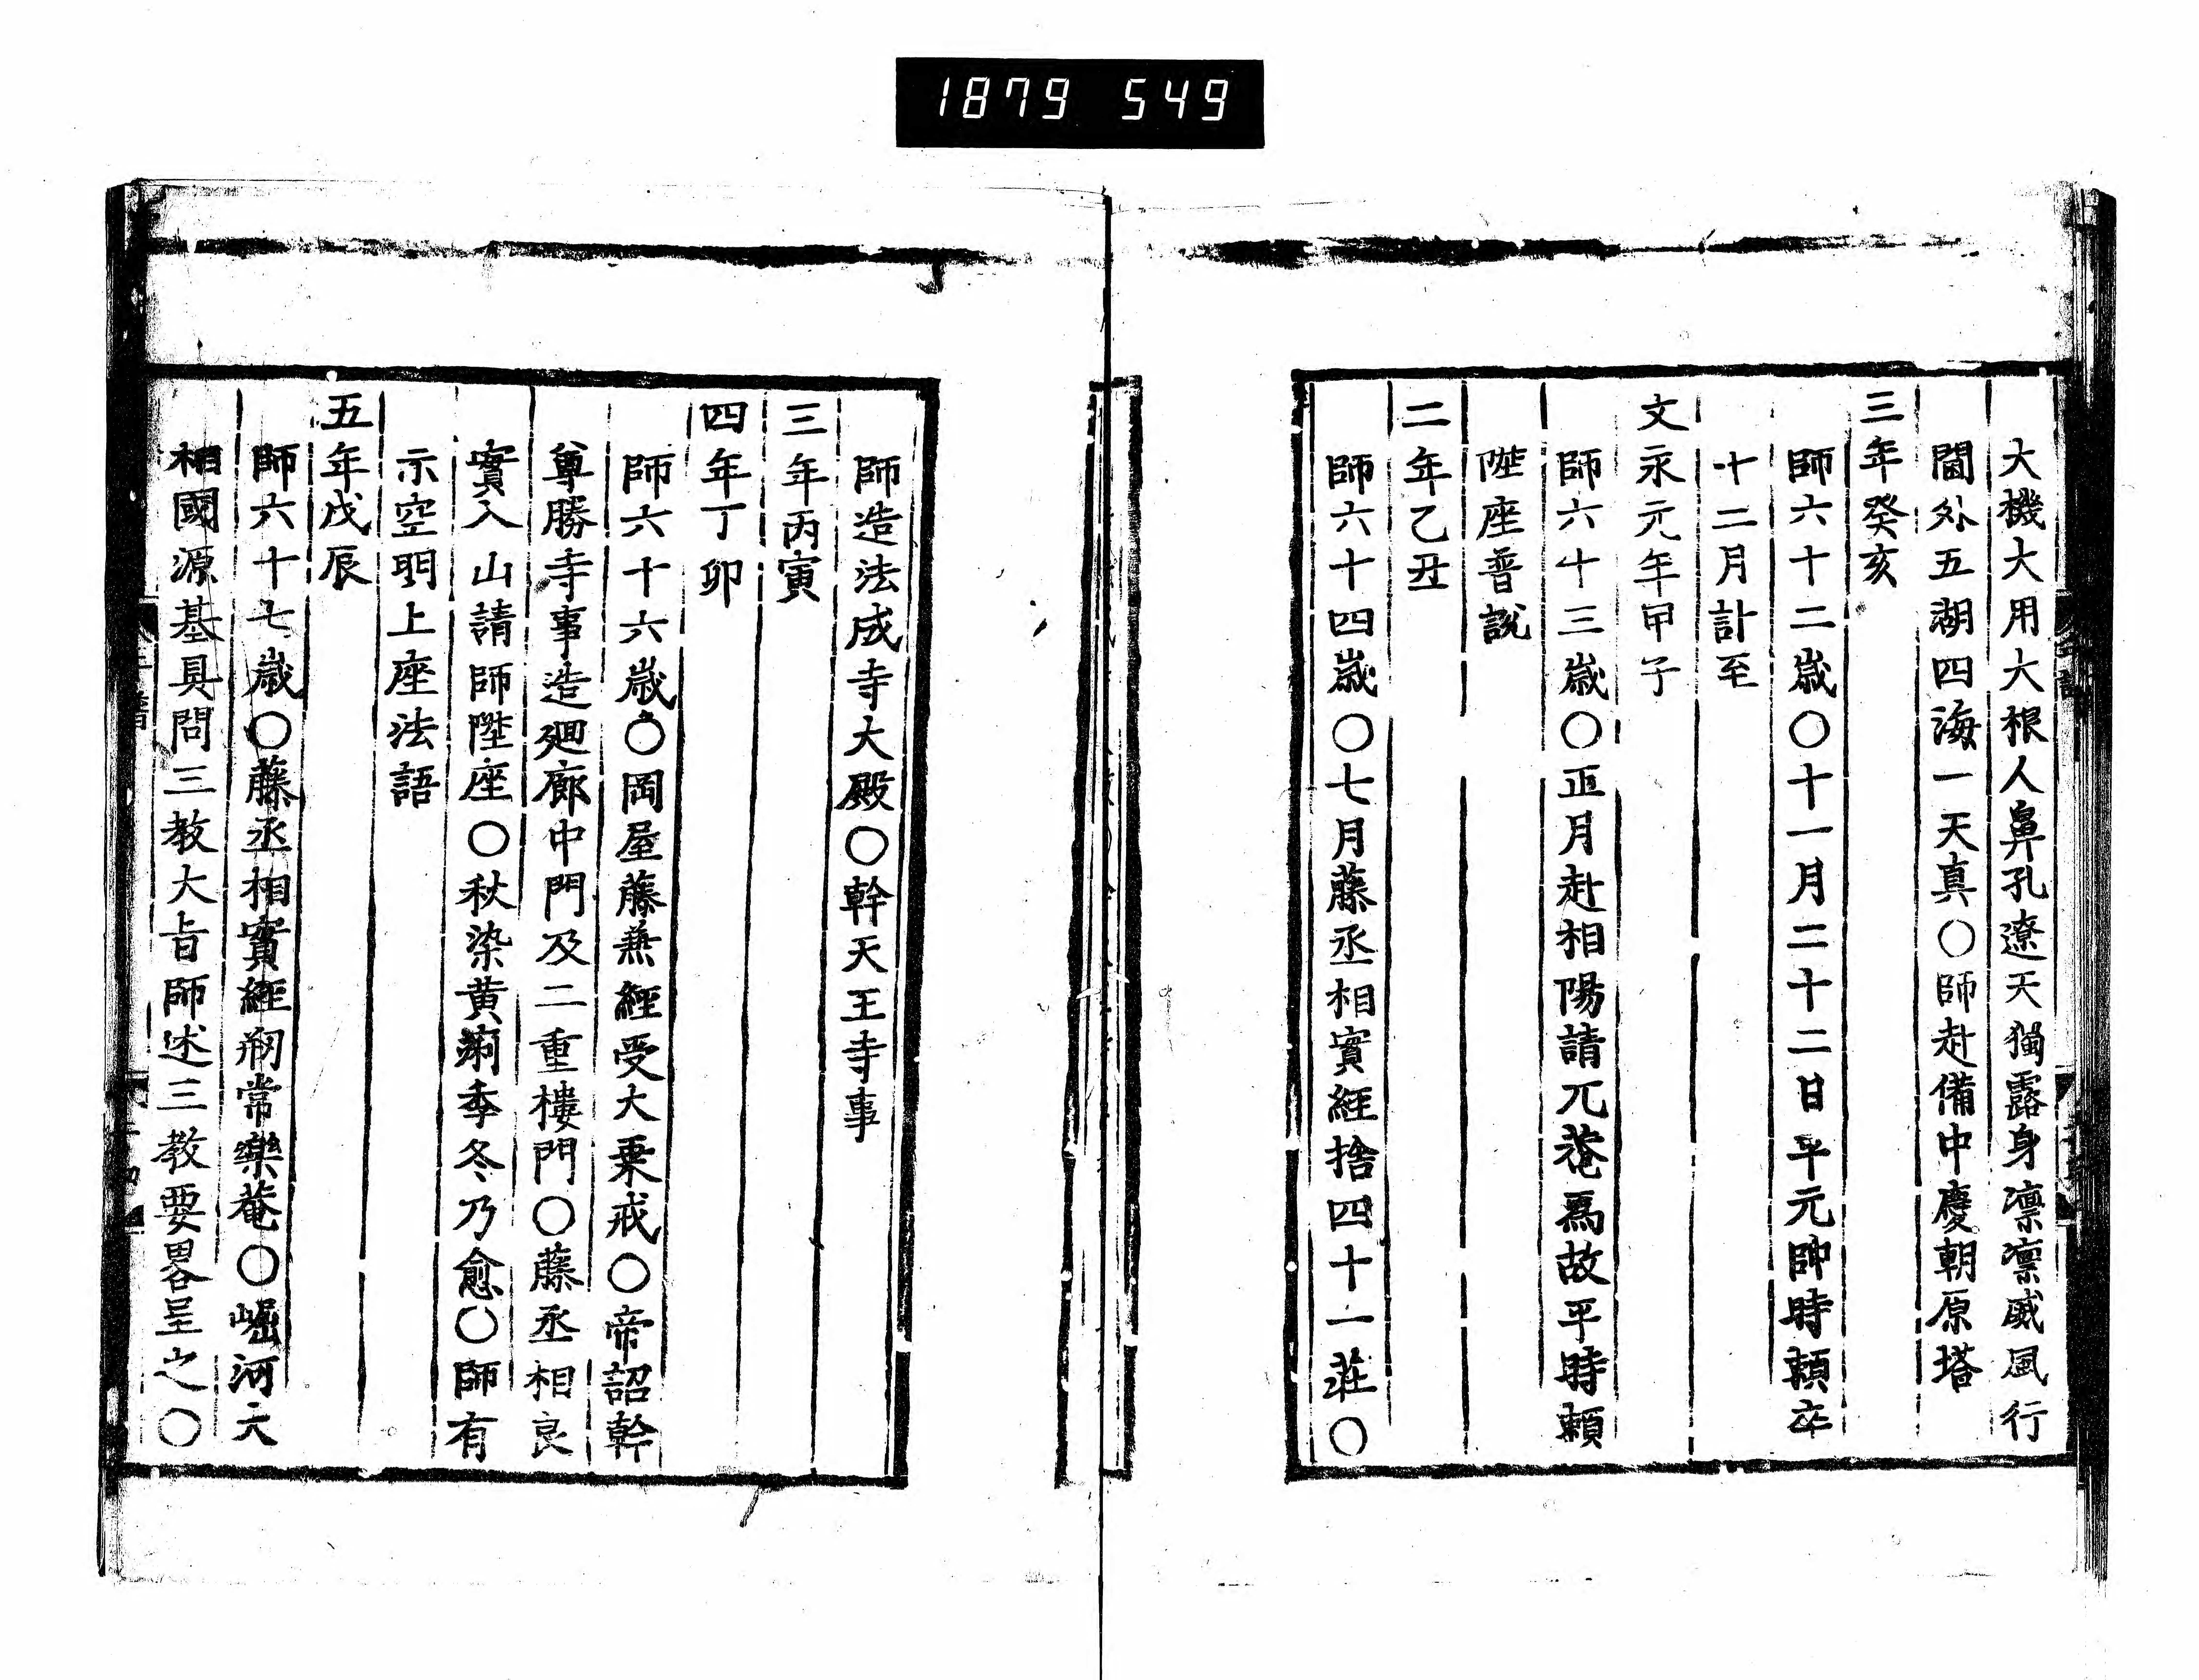 1879 549
大機大用大根人鼻孔遼天獨露身凛凛威風行
閫外五湖四海一天真○師赴備中慶朝原塔
三年癸亥
師六十二歳○十一月二十二日平元帥時頼卒
十二月計至
文永元年甲子
師六十三歳○正月赴相陽請兀菴爲故平時頼
陞座普說
二年乙丑
師六十四歳○七月藤丞相實經捨四十一莊○
師造法成寺大殿○幹天王寺事
三年丙寅
四年丁卯
師六十六歳○岡屋藤兼經受大乗戒○帝詔幹
尊勝寺事造廻廊中門及二重樓門○藤丞相良
實入山請師陞座○秋染黄痢季冬乃愈○師有
示空明上座法語
五年戊辰
師六十七歳○藤丞相實經剏常樂菴○崛河大
相國源基具問三教大㫖師述三教要畧呈之○